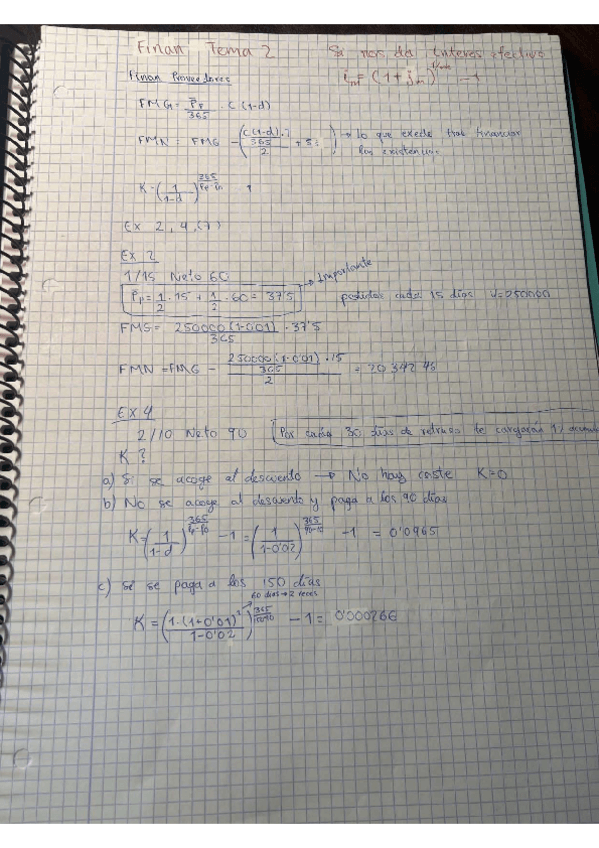 Finan Tema 2 Si nos da interes efectivo
Finan Proveedores i_m = (1 + j_m)^ - 1
FMG = P_F/365 · C (1-d)
FMN = FMG - ( (C(1-d)·)/365 / 2 + S ) → lo que excede tras financiar
las existencias
K = (1/1-d)^365/
Ex 2, 4, (7)
Ex 2
1/15 Neto 60 → Importante
P_P = 1/2 · 15 + 1/2 · 60 = 37'5 pedidos cada 15 días
FMG = 250000(1-0'01)/365 · 37'5
FMN = FMG - 250000(1-0'01)·15/365 / 2 = 20342'46
Ex 4
2/10 Neto 90 Por cada 30 días de retraso te cargaran 1%
K?
a) Si se acoge al descuento → No hay coste K=0
b) No se acoge al descuento y paga a los 90 días
K = (1/1-d)^365/ - 1 = (1/1-0'02)^365/90-10 - 1 = 0'0965
c) Si se paga a los 150 días
60 dias → 2 veces
K = (1·(1+0'01)^2/1-0'02)^365/ - 1 = 0'000266